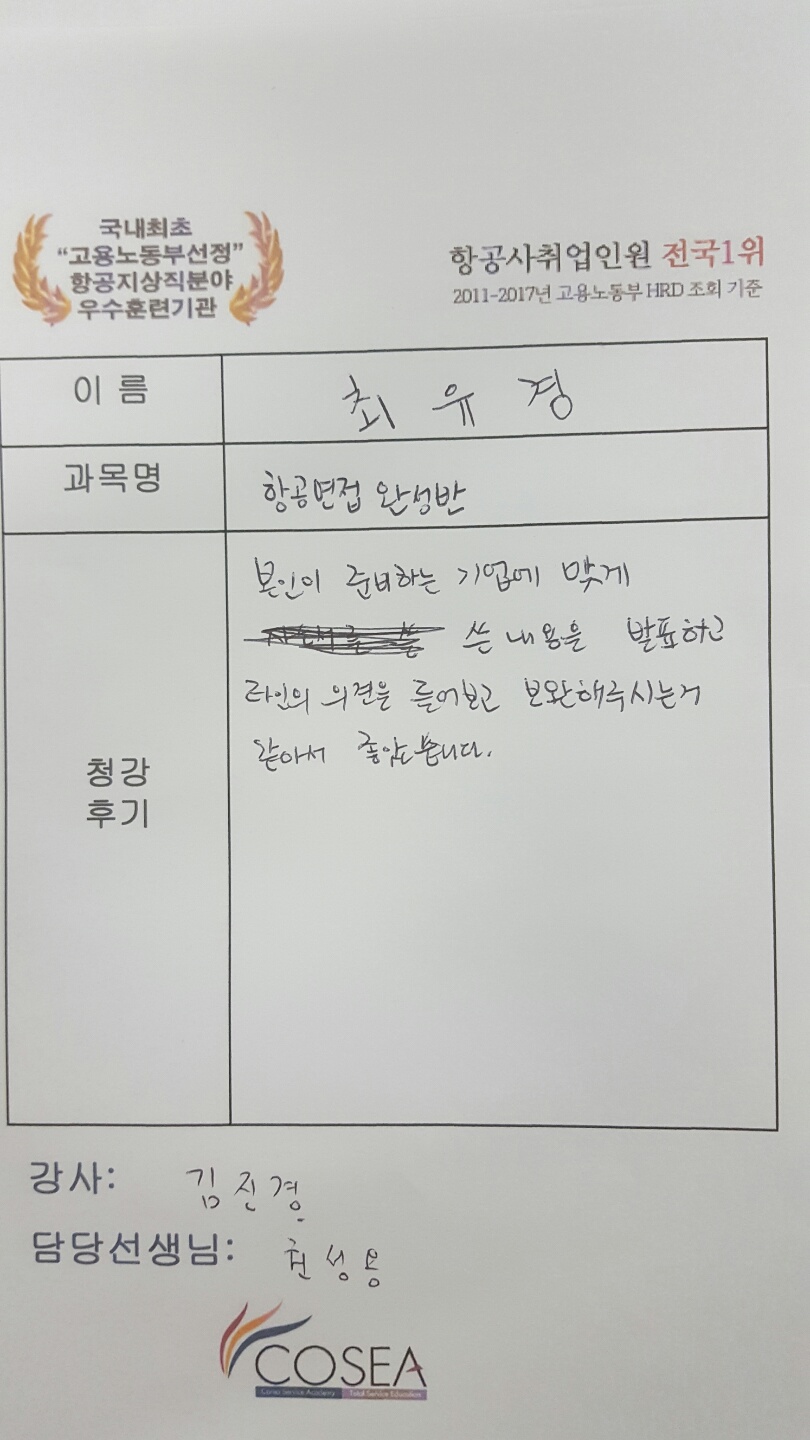 국내최초
“고용노동부선정”
항공지상직분야
우수훈련기관
항공사취업인원 전국1위
2011-2017년 고용노동부 HRD 조회 기준
이 름
최 유 경
과목명
항공면접 완성반
청강
후기
본인이 준비하는 기업에 맞게
쓴 내용을 발표하고
타인의 의견을 들어보고 보완해주시는거
같아서 좋았습니다.
강사: 김진경
담당선생님: 성용
COSEA
Corea Service Academy Total Service Education